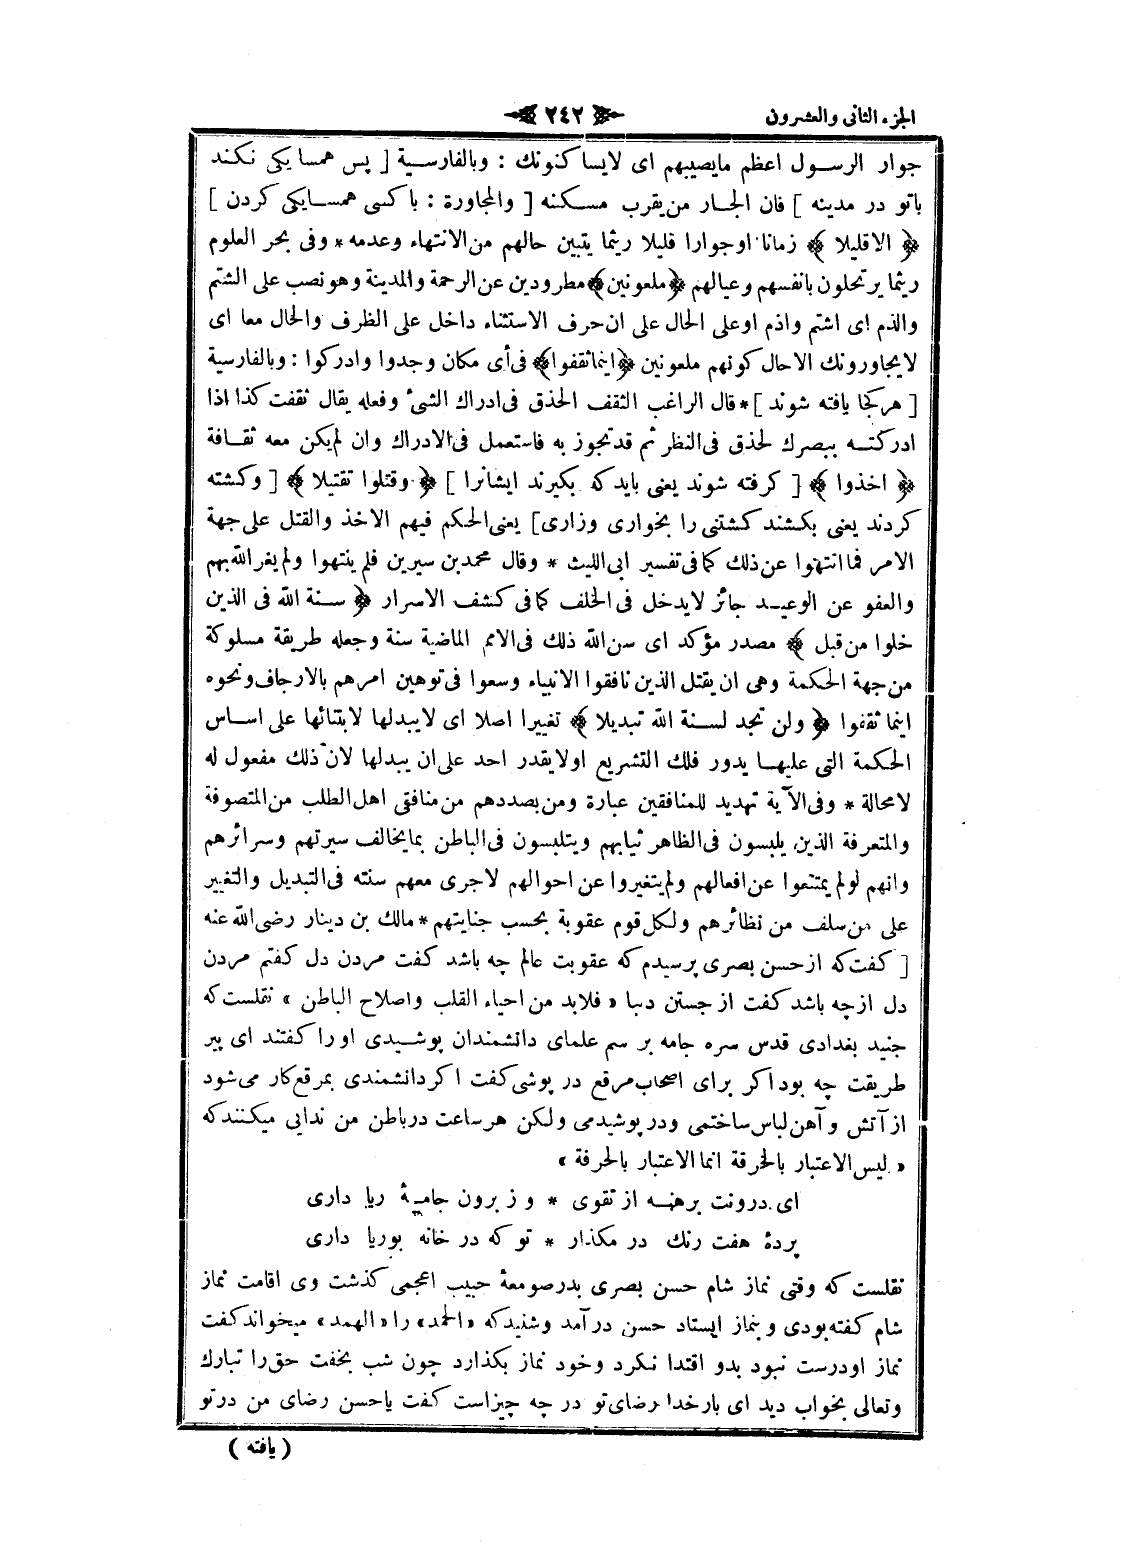 الجزء الثانى والعشرون
٢٤٢
جوار الرسول اعظم مايصيبهم اى لايساكنونك : وبالفارسية [ پس همسايكى نكند
باتو در مدينه ] فان الجار من يقرب مسكنه [ والمجاورة : باكسى همسايكى كردن ]
﴿ الاقليلا ﴾ زمانا اوجوارا قليلا ريثما يتبين حالهم من الانتهاء وعدمه * وفى بحر العلوم
ريثما يرتحلون بانفسهم وعيالهم ﴿ملعونين﴾ مطرودين عن الرحمة والمدينة وهو نصب على الشتم
والذم اى اشتم واذم اوعلى الحال على ان حرف الاستثناء داخل على الظرف والحال معا اى
لايجاورونك الاحال كونهم ملعونين ﴿اينما ثقفوا﴾ فى أى مكان وجدوا وادركوا : وبالفارسية
[ هركجا يافته شوند ] * قال الراغب الثقف الحذق فى ادراك الشئ وفعله يقال ثقفت كذا اذا
ادركته ببصرك لحذق فى النظر ثم قد تجوز به فاستعمل فى الادراك وان لم يكن معه ثقافة
﴿ اخذوا ﴾ [ كرفته شوند يعنى بايد كه بكيرند ايشانرا ] ﴿ وقتلوا تقتيلا ﴾ [ وكشته
كردند يعنى بكشند كشتنى را بخوارى وزارى] يعنى الحكم فيهم الاخذ والقتل على جهة
الامر فما انتهوا عن ذلك كما فى تفسير ابى الليث * وقال محمد بن سيرين فلم ينتهوا ولم يغر الله بهم
والعفو عن الوعيد جائز لايدخل فى الخلف كما فى كشف الاسرار ﴿ سنة الله فى الذين
خلوا من قبل ﴾ مصدر مؤكد اى سن الله ذلك فى الامم الماضية سنة وجعله طريقة مسلوكة
من جهة الحكمة وهى ان يقتل الذين نافقوا الانبياء وسعوا فى توهين امرهم بالارجاف ونحوه
اينما ثقفوا ﴿ ولن تجد لسنة الله تبديلا ﴾ تغييرا اصلا اى لايبدلها لابتنائها على اساس
الحكمة التى عليها يدور فلك التشريع اولايقدر احد على ان يبدلها لان ذلك مفعول له
لامحالة * وفى الآية تهديد للمنافقين عبارة ومن بصددهم من منافقى اهل الطلب من المتصوفة
والمتعرفة الذين يلبسون فى الظاهر ثيابهم ويتلبسون فى الباطن بما يخالف سيرتهم وسرائرهم
وانهم لولم يمتنعوا عن افعالهم ولم يتغيروا عن احوالهم لاجرى معهم سنته فى التبديل والتغيير
على من سلف من نظائرهم ولكل قوم عقوبة بحسب جنايتهم * مالك بن دينار رضى الله عنه
[ كفت كه ازحسن بصرى پرسيدم كه عقوبت عالم چه باشد كفت مردن دل كفتم مردن
دل ازچه باشد كفت از جستن دنيا « فلابد من احياء القلب واصلاح الباطن » نقلست كه
جنيد بغدادى قدس سره جامه بر سم علماى دانشمندان پوشيدى اورا كفتند اى پير
طريقت چه بود اكر براى اصحاب مرقع در پوشى كفت اكر دانشمندى بمرقع كار مى شود
از آتش و آهن لباس ساختمى ودر پوشيدمى ولكن هر ساعت در باطن من ندايى ميكنند كه
« ليس الاعتبار بالخرقة انما الاعتبار بالحرقة »
اى درونت برهنه از تقوى * وز برون جامهٔ ريا دارى
پردهٔ هفت رنك در مكذار * توكه در خانه بوريا دارى
نقلست كه وقتى نماز شام حسن بصرى بدر صومعهٔ حبيب اعجمى كذشت وى اقامت نماز
شام كفته بودى و بنماز ايستاد حسن در آمد وشنيد كه «الحمد» را «الهمد» ميخواند كفت
نماز اودرست نبود بدو اقتدا نكرد وخود نماز بكذارد چون شب بخفت حق را تبارك
وتعالى بخواب ديد اى بار خدا رضاى تو در چه چيزاست كفت ياحسن رضاى من در تو
( يافته )